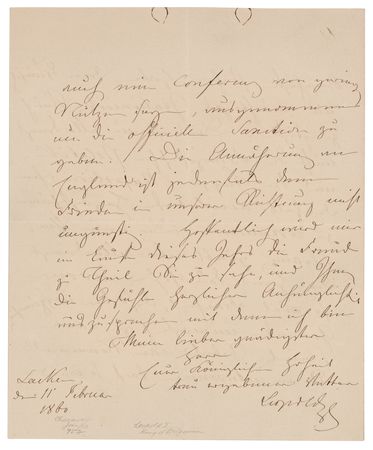 auch eine Conferenz von geringem
Nutzen seyn, ausgenommen
um die officielle Sanction zu
geben. Die Annäherung an
England ist jedenfals dem
Frieden in unserer Richtung nicht
ungünstig. Hoffentlich wird mir
im Laufe dieses Jahrs die Freude
zu Theil Sie zu sehen, und Ihnen
die Gefühle herzlicher Anhänglichkeit
auszusprechen mit denen ich bin
Mein lieber gnädigster
Herr
Eurer Königlichen Hoheit
treu ergebener Vetter
Leopold
Laeken
den 11 Februar
1860
Leopold I
King of Belgians